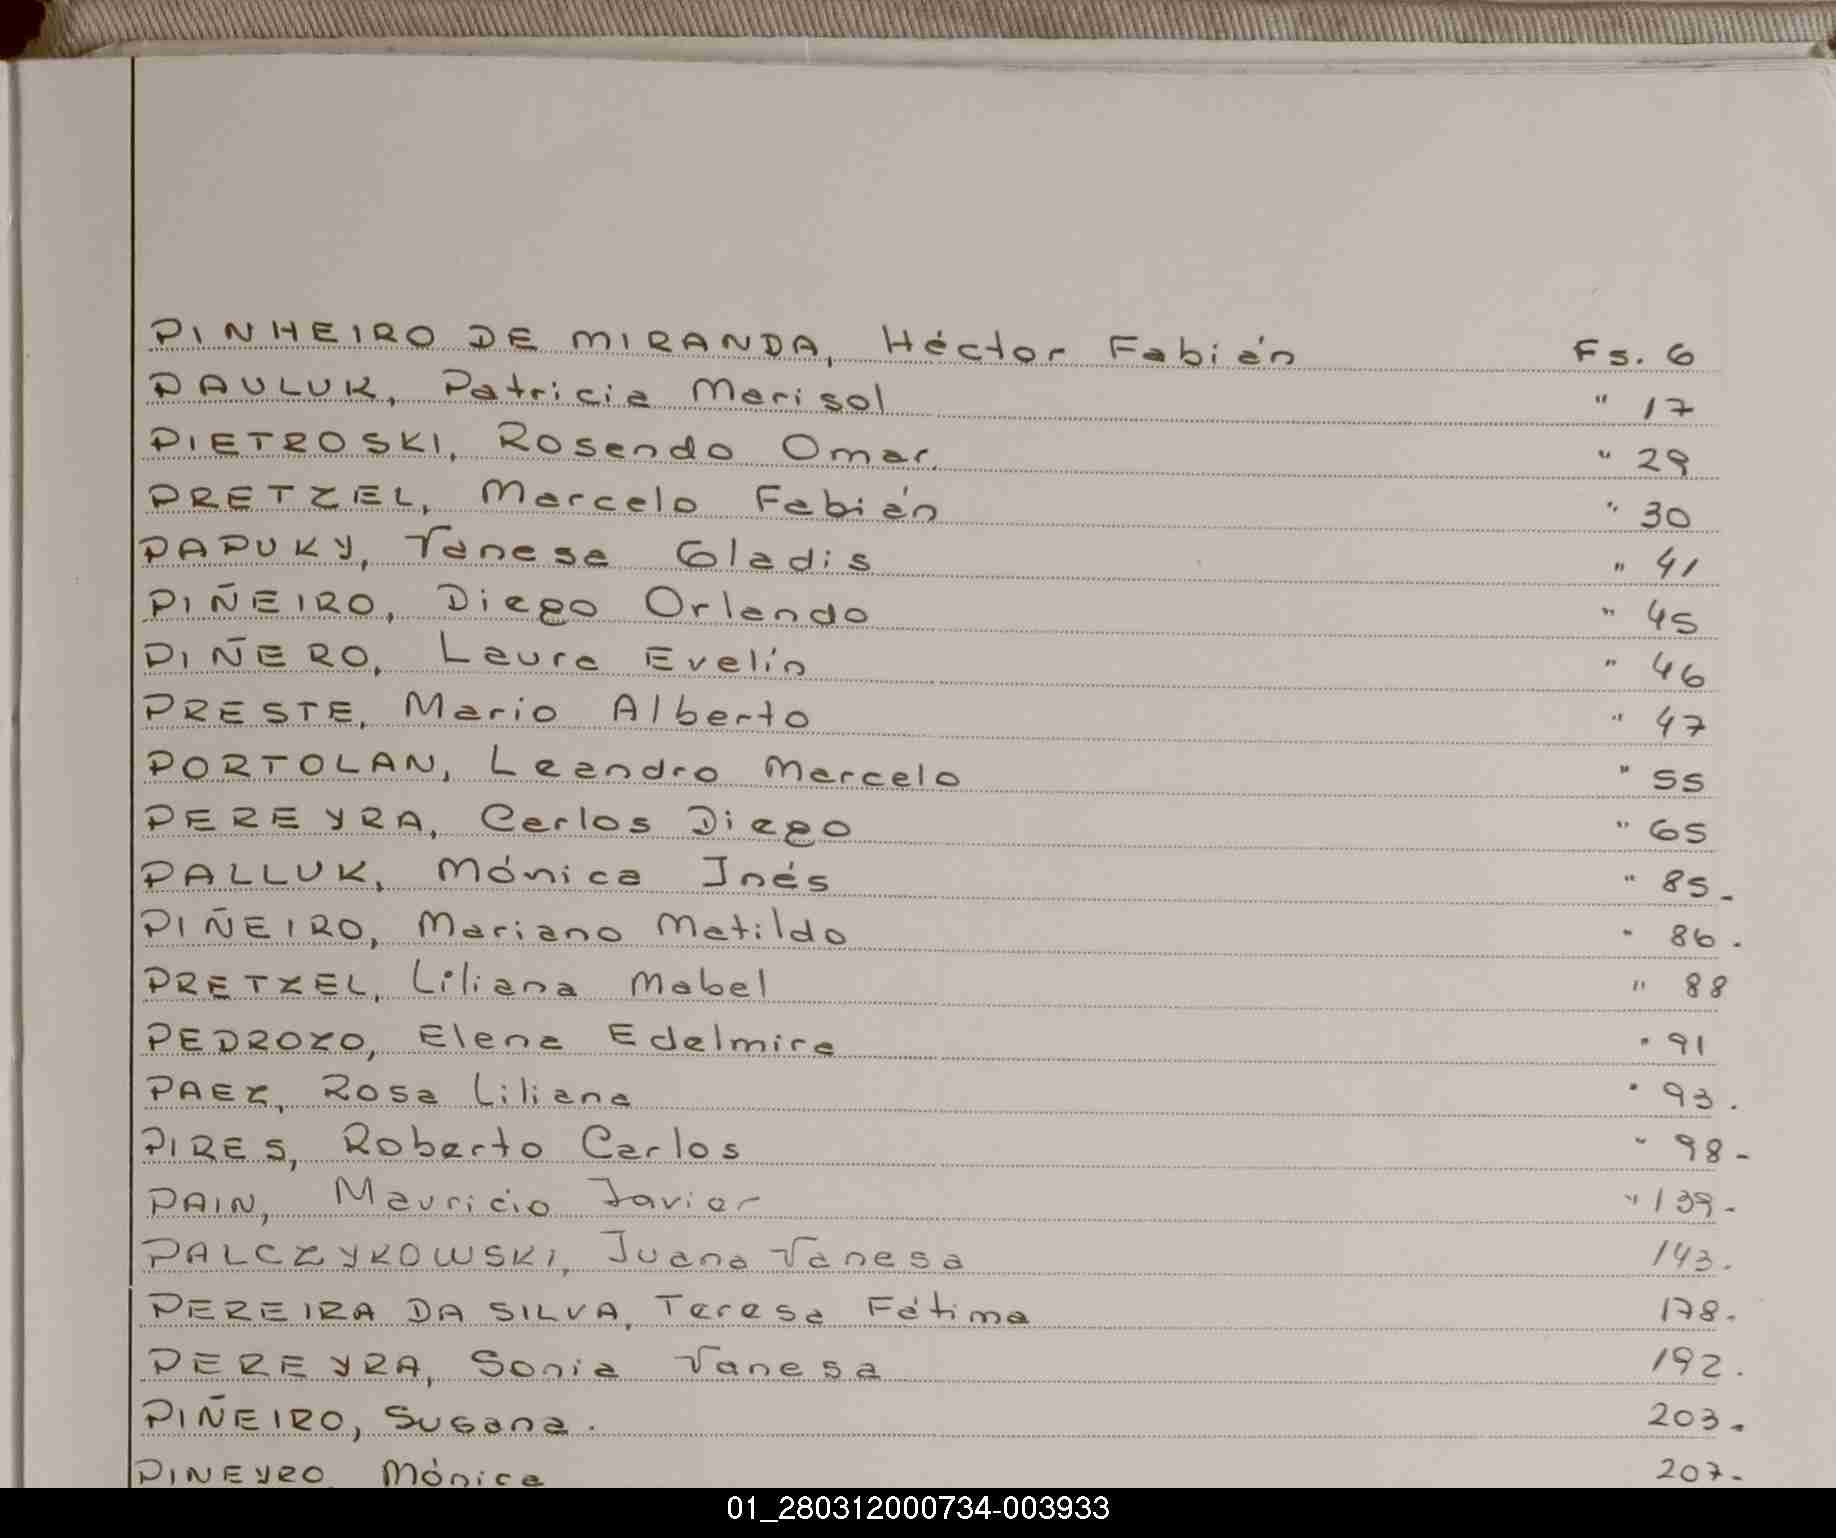 PINHEIRO DE MIRANDA, Héctor Fabián Fs. 6
PAULUK, Patricia Marisol " 17
PIETROSKI, Rosendo Omar. " 29
PRETZEL, Marcelo Fabián " 30
PAPUKY, Vanesa Gladis " 41
PIÑEIRO, Diego Orlando " 45
PIÑERO, Laura Evelín " 46
PRESTE, Mario Alberto " 47
PORTOLAN, Leandro Marcelo " 55
PEREYRA, Carlos Diego " 65
PALLUK, Mónica Inés " 85-
PIÑEIRO, Mariano Matildo " 86.
PRETZEL, Liliana Mabel " 88
PEDROZO, Elena Edelmira " 91
PAEZ, Rosa Liliana " 93.
PIRES, Roberto Carlos " 98-
PAIN, Mauricio Javier " 139-
PALCZYKOWSKI, Juana Vanesa 143.
PEREIRA DA SILVA, Teresa Fátima 178.
PEREYRA, Sonia Vanesa 192.
PIÑEIRO, Susana. 203.
PINEYRO Mónica 207-
01_280312000734-003933